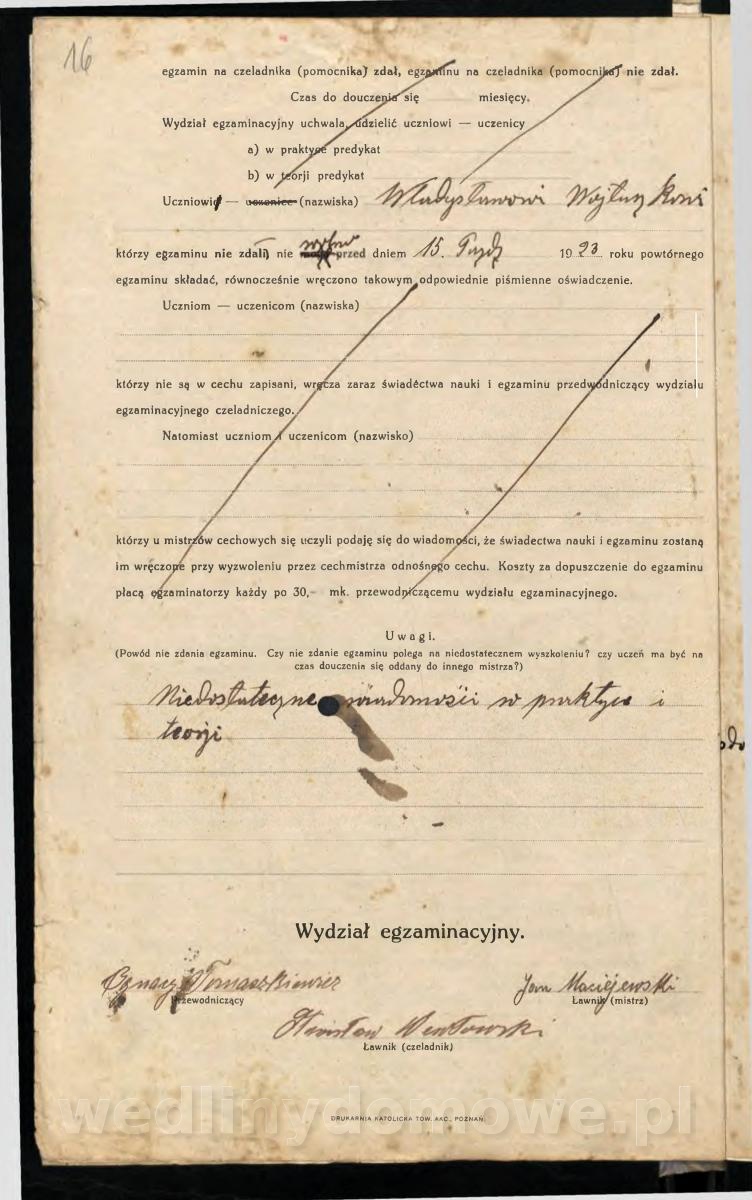 16
egzamin na czeladnika (pomocnika) zdał, egzaminu na czeladnika (pomocnika) nie zdał.
Czas do douczenia się miesięcy.
Wydział egzaminacyjny uchwala, udzielić uczniowi — uczenicy
a) w praktyce predykat
b) w teorji predykat
Uczniowi — uczenice (nazwiska) Władysławowi
którzy egzaminu nie zdali) nie przed dniem 15. 1923 roku powtórnego
egzaminu składać, równocześnie wręczono takowym odpowiednie piśmienne oświadczenie.
Uczniom — uczenicom (nazwiska)
którzy nie są w cechu zapisani, wręcza zaraz świadectwa nauki i egzaminu przedwodniczący wydziału
egzaminacyjnego czeladniczego.
Natomiast uczniom i uczenicom (nazwisko)
którzy u mistrzów cechowych się uczyli podaję się do wiadomości, że świadectwa nauki i egzaminu zostaną
im wręczone przy wyzwoleniu przez cechmistrza odnośnego cechu. Koszty za dopuszczenie do egzaminu
płacą egzaminatorzy każdy po 30,- mk. przewodniczącemu wydziału egzaminacyjnego.
Uwagi.
(Powód nie zdania egzaminu. Czy nie zdanie egzaminu polega na niedostatecznem wyszkoleniu? czy uczeń ma być na
czas douczenia się oddany do innego mistrza?)
Niedostateczne wiadomości w praktyce i
teorji
Wydział egzaminacyjny.
Ignacy Tomaszkiewicz
Jan Maciejewski
Przewodniczący
Ławnik (mistrz)
Stanisław
Ławnik (czeladnik)
wedlinydomowe.pl
DRUKARNIA KATOLICKA TOW. AKC., POZNAŃ